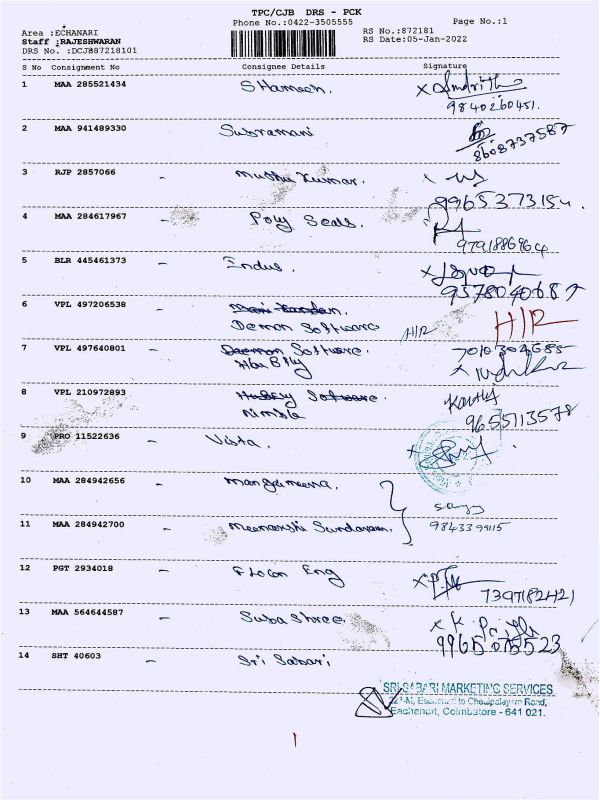 TPC/CJB DRS - PCK
Phone No.:0422-3505555 Page No.:1
Area :ECHANARI RS No.:872181
Staff :RAJESHWARAN RS Date:05-Jan-2022
DRS No. :DCJB87218101
S No Consignment No Consignee Details Signature
1 MAA 285521434 S Hameeh.
9840260451.
2 MAA 941489330 Subramani
8608737587
3 RJP 2857066 - Muthu Kumar.
4 MAA 284617967 - Poly Seals.
9791886964
5 BLR 445461373 - Indus.
9578040687
6 VPL 497206538 Demon Software H/R H/R
7 VPL 497640801 - Software. 7010304685
8 VPL 210972893 Nimble
9655113578
9 PRO 11522636 - Vista.
10 MAA 284942656 - Mangameena.
11 MAA 284942700 - Meenakshi Sundaram. 9843399115
12 PGT 2934018 - Eng
7397182421
13 MAA 564644587 - Suba Shree.
9965075523
14 SHT 40603 - Sri Sabari
SRI SABARI MARKETING SERVICES
Eachanari, Coimbatore - 641 021.